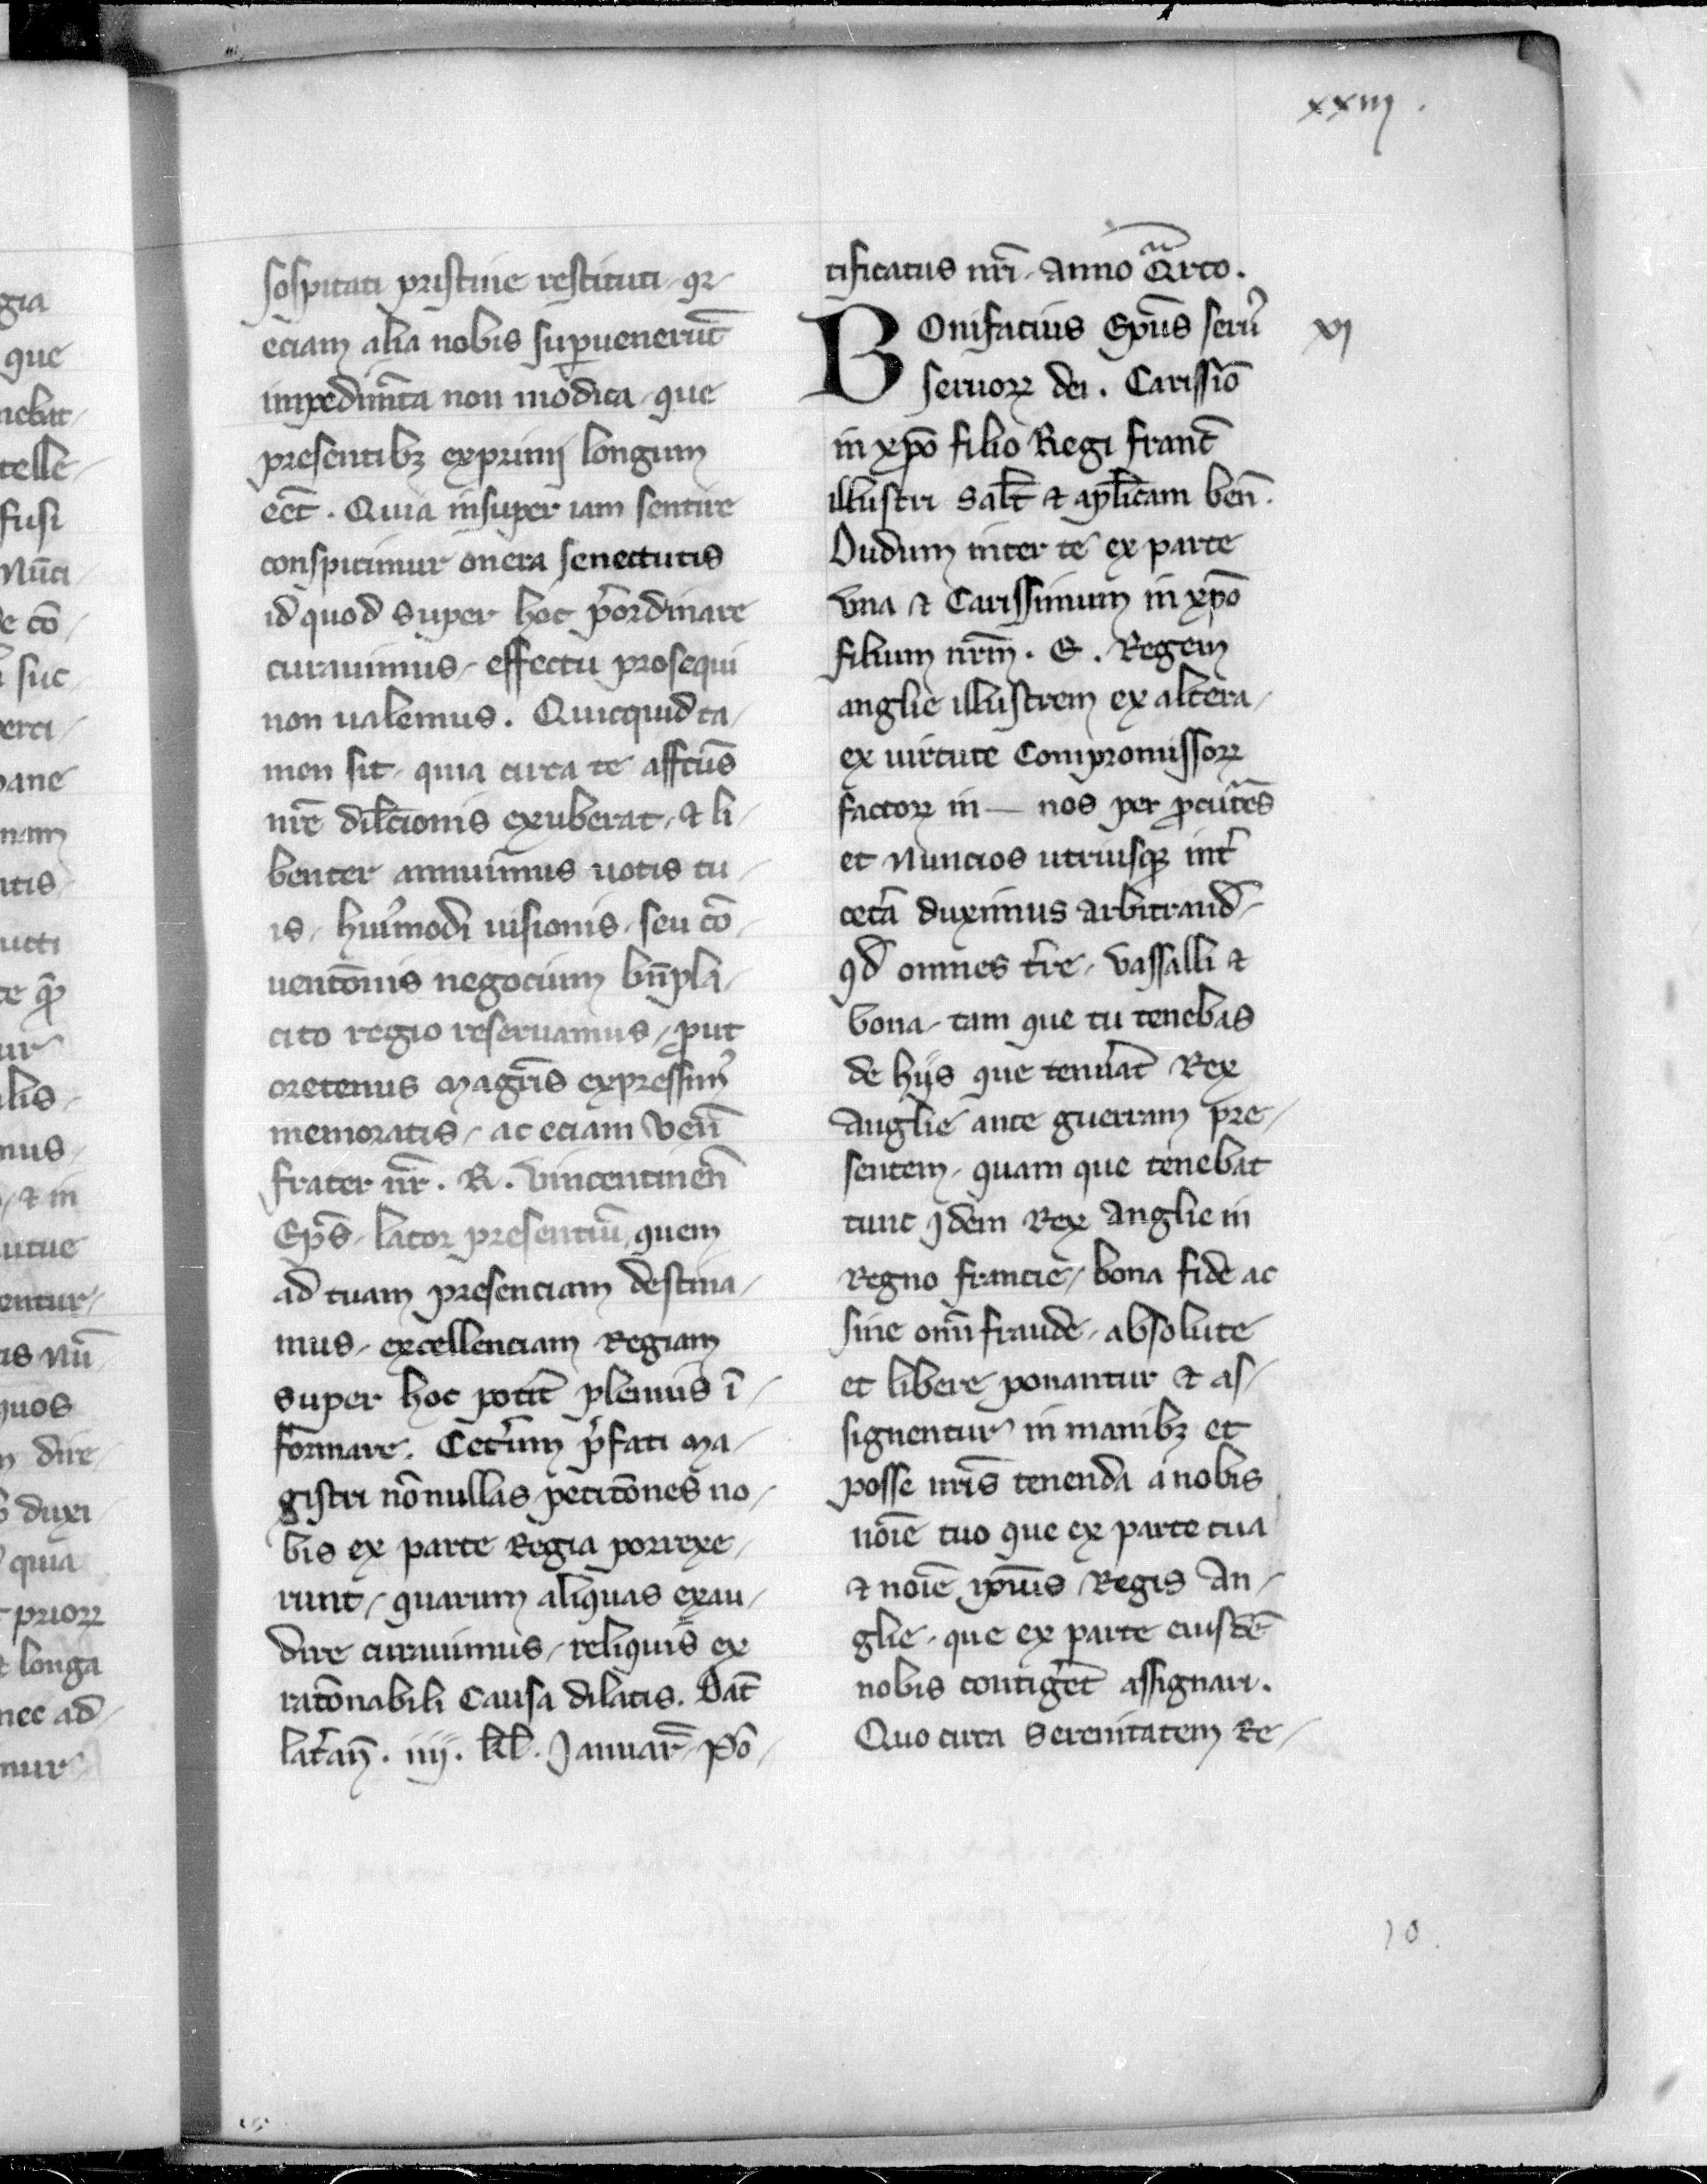 xxiij.
sospitati pristine restituti / qꝛ /
eciam alia nobis suꝑuenerūt
impedimēta non modica / que
presentibꝫ exprimi longum
eēt. Quia insuper iam sentire
conspicimur onera senectutis
id quod super hoc p̄ordinare
curauimus / effectu prosequi
non ualemus. Quicquid ta /
men sit / quia circa te affcūs
nrē dilc̄ionis exuberat / ⁊ li /
benter annuimus uotis tu /
is / huiꝰmodi uisionis / seu cō /
uentōnis negocium bn̄pla /
cito regio reseruamus / ꝓut
oretenus magrīs expressimꝰ
memoratis / ac eciam Ven̄
frater nr̄. R. Vincentinen̄
Ep̄s / lator presentiū / quem
ad tuam presenciam destina /
mus / excellenciam Regiam
super hoc potit̄ plenius ī /
formare. Cet̄um p̄fati ma /
gistri nōnullas petitōnes no /
bis ex parte Regia porrexe /
runt / quarum aliquas exau /
dire curauimus / reliquis ex
ratōnabili causa dilatis. Dat̄
lat̄an̄. iiij. kl̄. Januar̄ / Pō /
tificatus nrī / Anno Qᵃrto.
BOnifacius Ep̄us seruꝰ
seruoꝝ dei. Carissīo
in xp̄o filio Regi franc̄
illustri Salt̄ ⁊ apl̄icam ben̄.
Dudum inter te ex parte
vna ⁊ Carissimum in xp̄o
filium nrm̄. E. Regem
anglie illustrem ex altera /
ex uirtute Compromissoꝝ
factoꝝ in — nos per ꝓcūtes
et Nuncios utriusqꝫ int̄
cet̄a duximus arbitrand̄ /
qd̄ omnes t̄re / Vassalli ⁊
bona / tam que tu tenebas
de hijs que tenuat̄ Rex
Anglie ante guerram pre /
sentem / quam que tenebat
tunc Jdem Rex Anglie in
Regno francie / bona fide ac
sine om̄i fraude / absolute
et libere ponantur ⁊ as /
signentur in manibꝫ et
posse nrīs tenenda a nobis
noīe tuo que ex parte tua
⁊ noīe ip̄ius Regis An /
glie / que ex parte eiusdē
nobis contigēt assignari.
Quo circa Serenitatem Re /
xj
10.